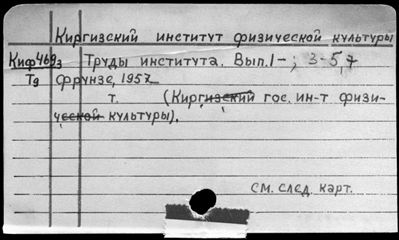 Киргизский институт физической культуры
Киф469з Труды института. Вып.1-; 3-5,7
Тд Фрунзе, 1957
т. (Киргизский гос. ин-т физи-
ческой культуры).
см. след. карт.